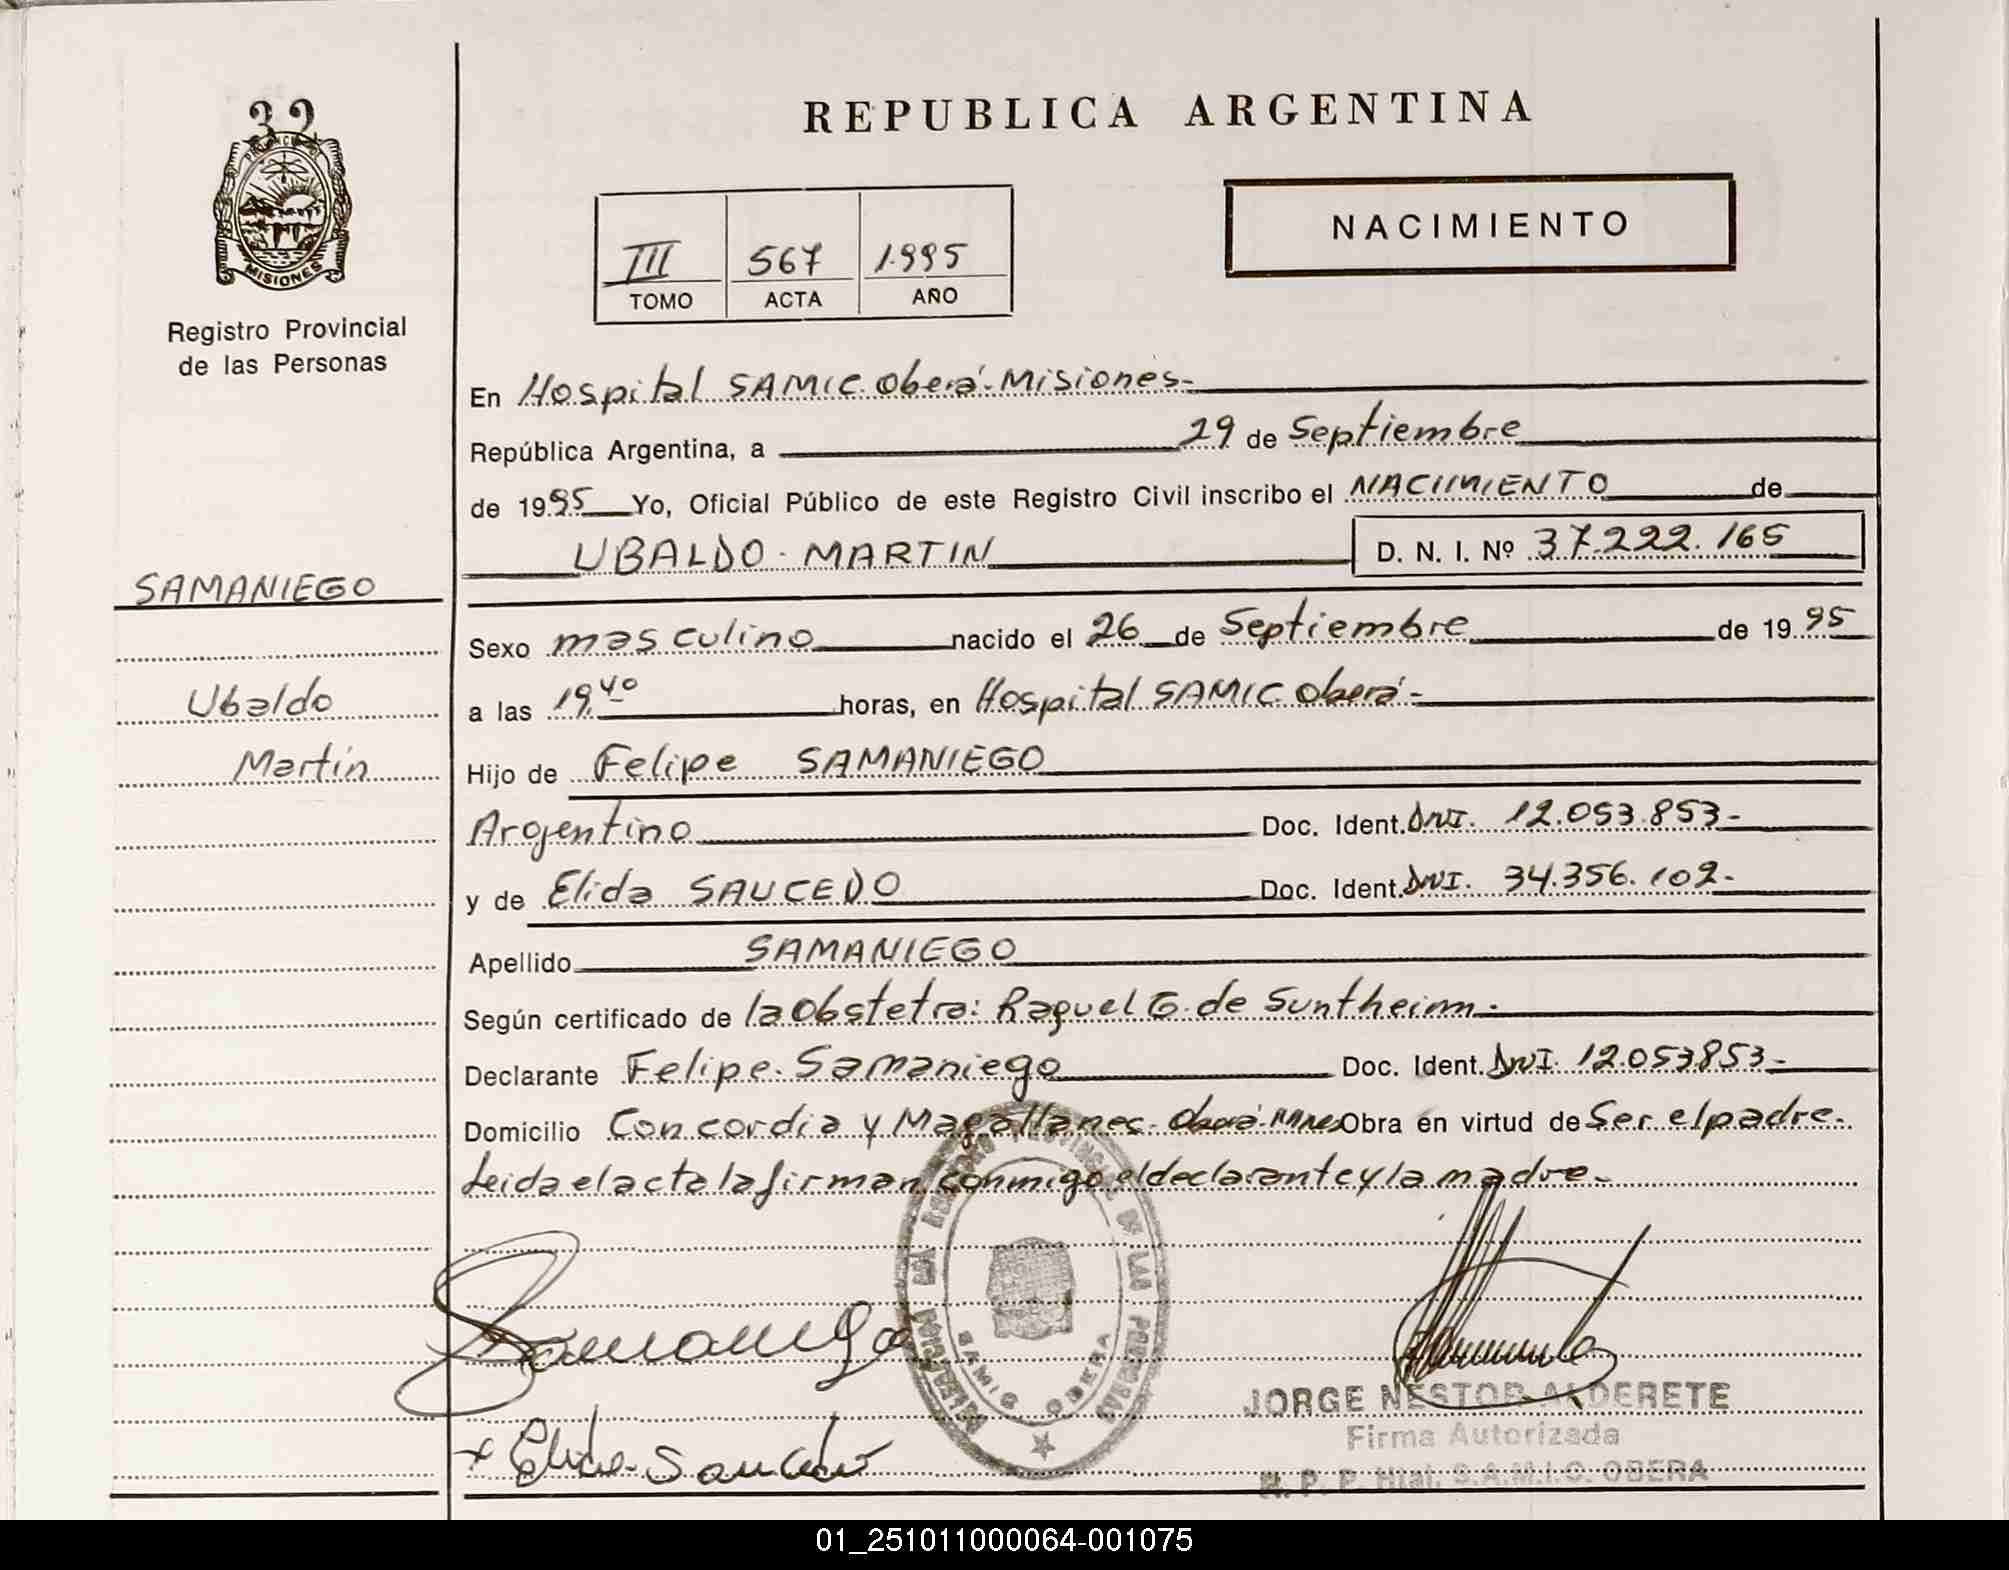 32
PROVINCIA DE
MISIONES
Registro Provincial
de las Personas
REPUBLICA ARGENTINA
NACIMIENTO
III 567 1.995
TOMO ACTA AÑO
En Hospital SAMIC. Oberá - Misiones -
República Argentina, a 29 de Septiembre
de 1995 Yo, Oficial Público de este Registro Civil inscribo el NACIMIENTO de
UBALDO MARTIN D. N. I. Nº 37.222.165
SAMANIEGO
Ubaldo
Martín
Sexo masculino nacido el 26 de Septiembre de 1995
a las 19,40 horas, en Hospital SAMIC. Oberá -
Hijo de Felipe SAMANIEGO
Argentino Doc. Ident. DNI. 12.053.853 -
y de Elida SAUCEDO Doc. Ident. DNI. 34.356.102 -
Apellido SAMANIEGO
Según certificado de la Obstetra: Raquel G. de Suntheim.
Declarante Felipe Samaniego Doc. Ident. DNI. 12.053.853 -
Domicilio Concordia y Magallanes - Oberá - Mnes Obra en virtud de Ser el padre.
Leida el acta la firman conmigo el declarante y la madre.
Samaniego
x Elida Saucedo
DE LAS PERSONAS
SAMIC OBERA
JORGE NESTOR ALDERETE
Firma Autorizada
R. P. P. Htal. S.A.M.I.C. OBERA
01_251011000064-001075